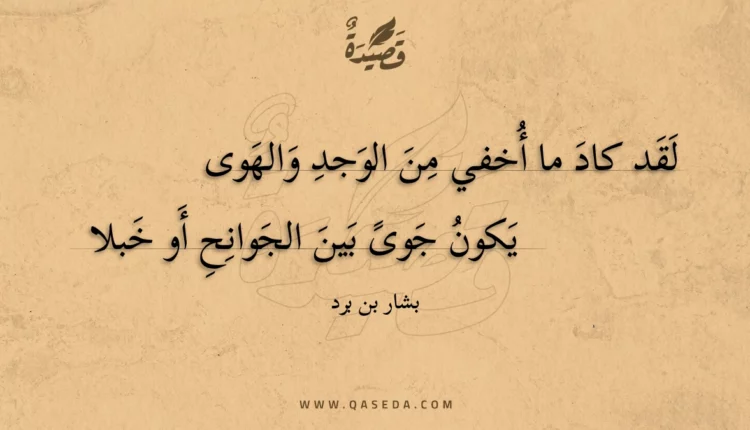 قَصِيدَةٌ
لَقَد كادَ ما أُخفي مِنَ الوَجدِ وَالهَوى
يَكونُ جَوىً بَينَ الجَوانِحِ أَو خَبلا
بشار بن برد
WWW.QASEDA.COM